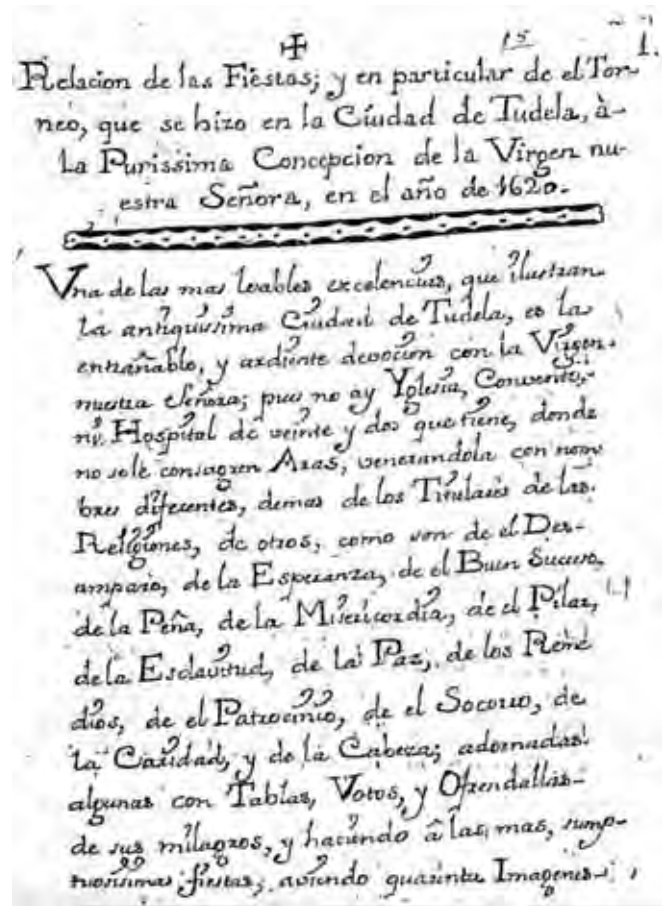 15 1.
Relacion de las Fiestas; y en particular de el Tor-
neo, que se hizo en la Ciudad de Tudela, à-
La Purissima Concepcion de la Virgen nu-
estra Señora, en el año de 1620.
Vna de las mas loables excelencias, que ilustran
La antiquissima Ciudad de Tudela, es la
entrañable, y ardiente devocion con la Virgen
nuestra Señora; pues no ay Yglesia, Convento,
ni Hospital de veinte y dos que tiene, donde
no se le consagren Aras, venerandola con nom
bres diferentes, demas de los Titulares de las
Religiones, de otros, como son de el Des-
amparo, de la Esperanza, de el Buen Suceso,
de la Peña, de la Misericordia, de el Pilar,
de la Esclavitud, de la Paz, de los Reme
dios, de el Patrocinio, de el Socorro, de
la Caridad, y de la Cabeza; adornadas
algunas con Tablas, Votos, y Ofrendallas-
de sus milagros, y haciendo â las mas, sump-
tuosissimas fiestas; aviendo quarinta Imagenes-